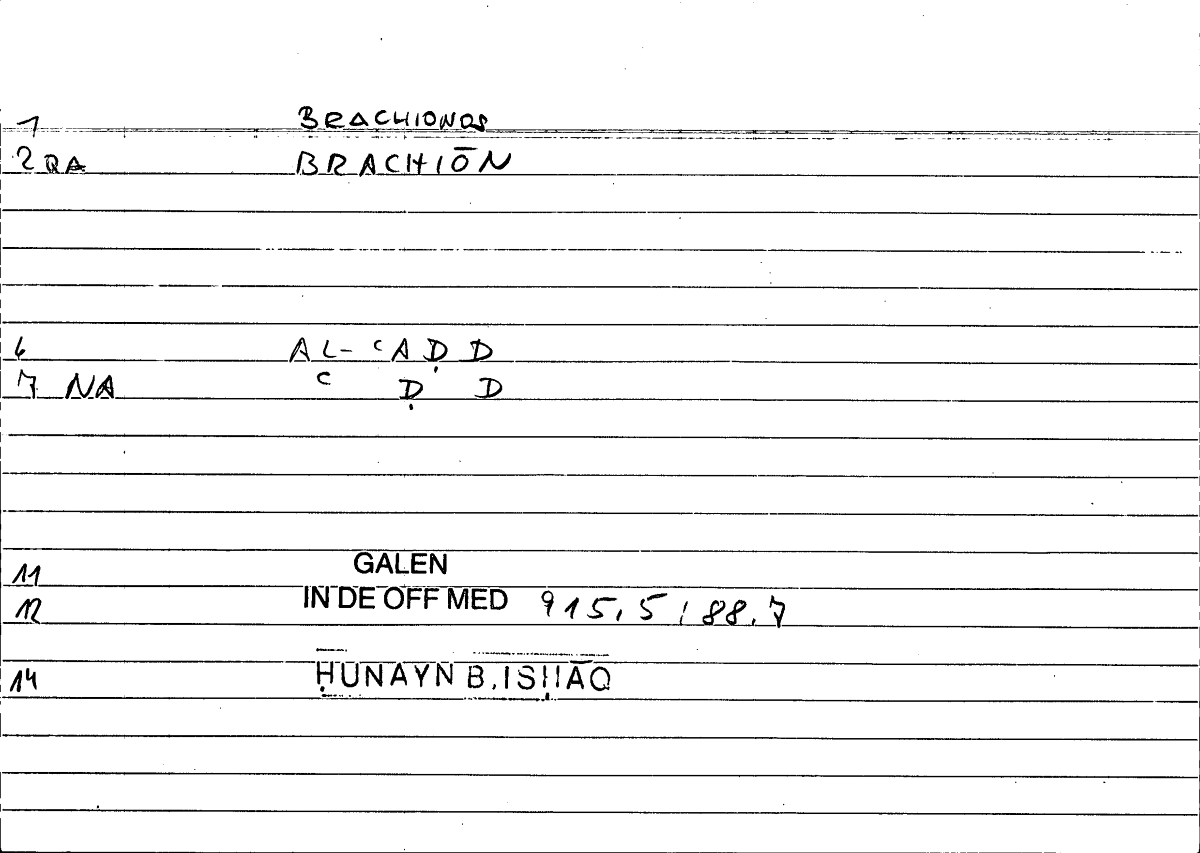 1 BRACHIONOS
2 QA BRACHIŌN
6 AL-ʿAḌD
7 NA ʿ Ḍ D
11 GALEN
12 IN DE OFF MED 915,5 / 88.7
14 ḤUNAYN B. ISḤĀQ